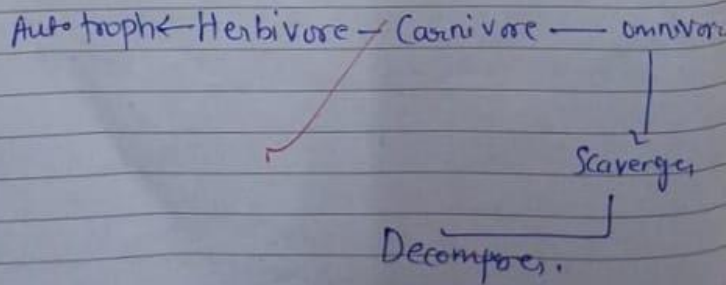 Autotroph ← Herbivore - Carnivore — omnivore
Scavenger
Decomposer.